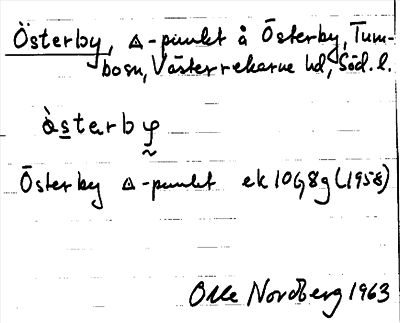 Österby, △-punkt å Österby, Tum-
bosn, Västerrekarne hd, Söd. l.
ȯ̀sterbφ̰
Österby △-punkt ek 10G8g (1958)
Olle Nordberg 1963